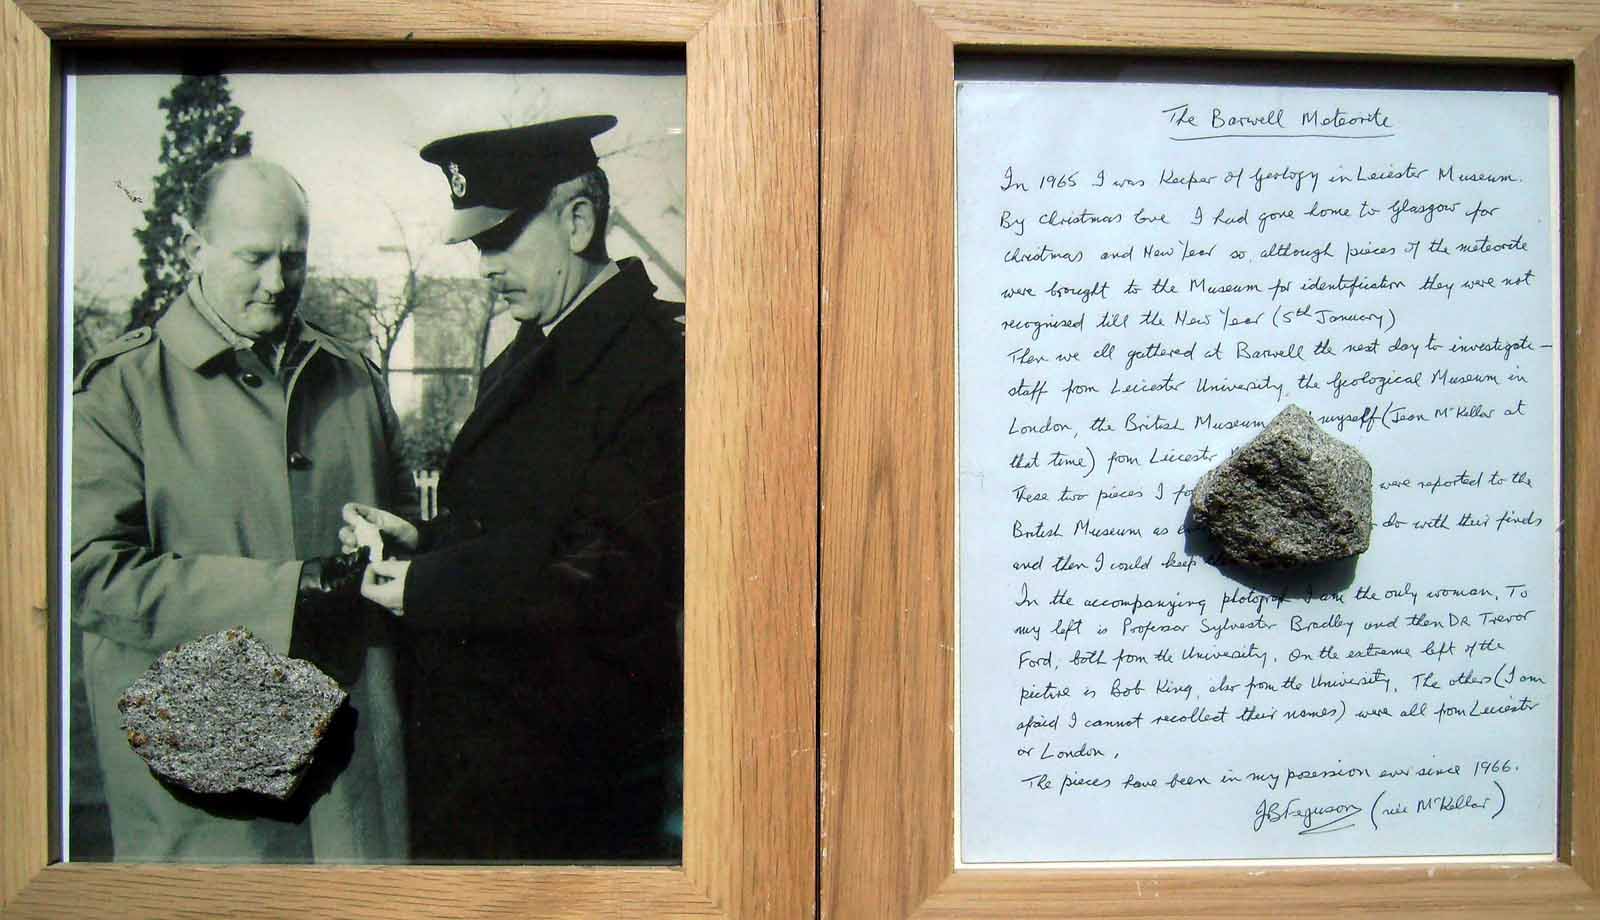 The Barwell Meteorite
In 1965 I was Keeper of Geology in Leicester Museum.
By Christmas Eve I had gone home to Glasgow for
Christmas and New Year so, although pieces of the meteorite
were brought to the Museum for identification they were not
recognised till the New Year (5th January)
Then we all gathered at Barwell the next day to investigate –
staff from Leicester University, the Geological Museum in
London, the British Museum myself (Jean McKellar at
that time) from Leicester
These two pieces I were reported to the
British Museum as do with their finds
and then I could keep
In the accompanying photograph I am the only woman. To
my left is Professor Sylvester Bradley and then Dr Trevor
Ford, both from the University. On the extreme left of the
picture is Bob King, also from the University. The others (I am
afraid I cannot recollect their names) were all from Leicester
or London.
The pieces have been in my posession ever since 1966.
JB Ferguson (née McKellar)